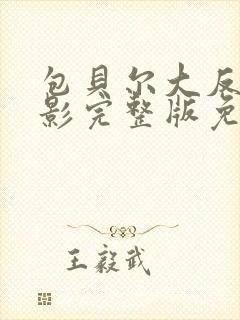 包貝尔大反
影完整版免
王毅武